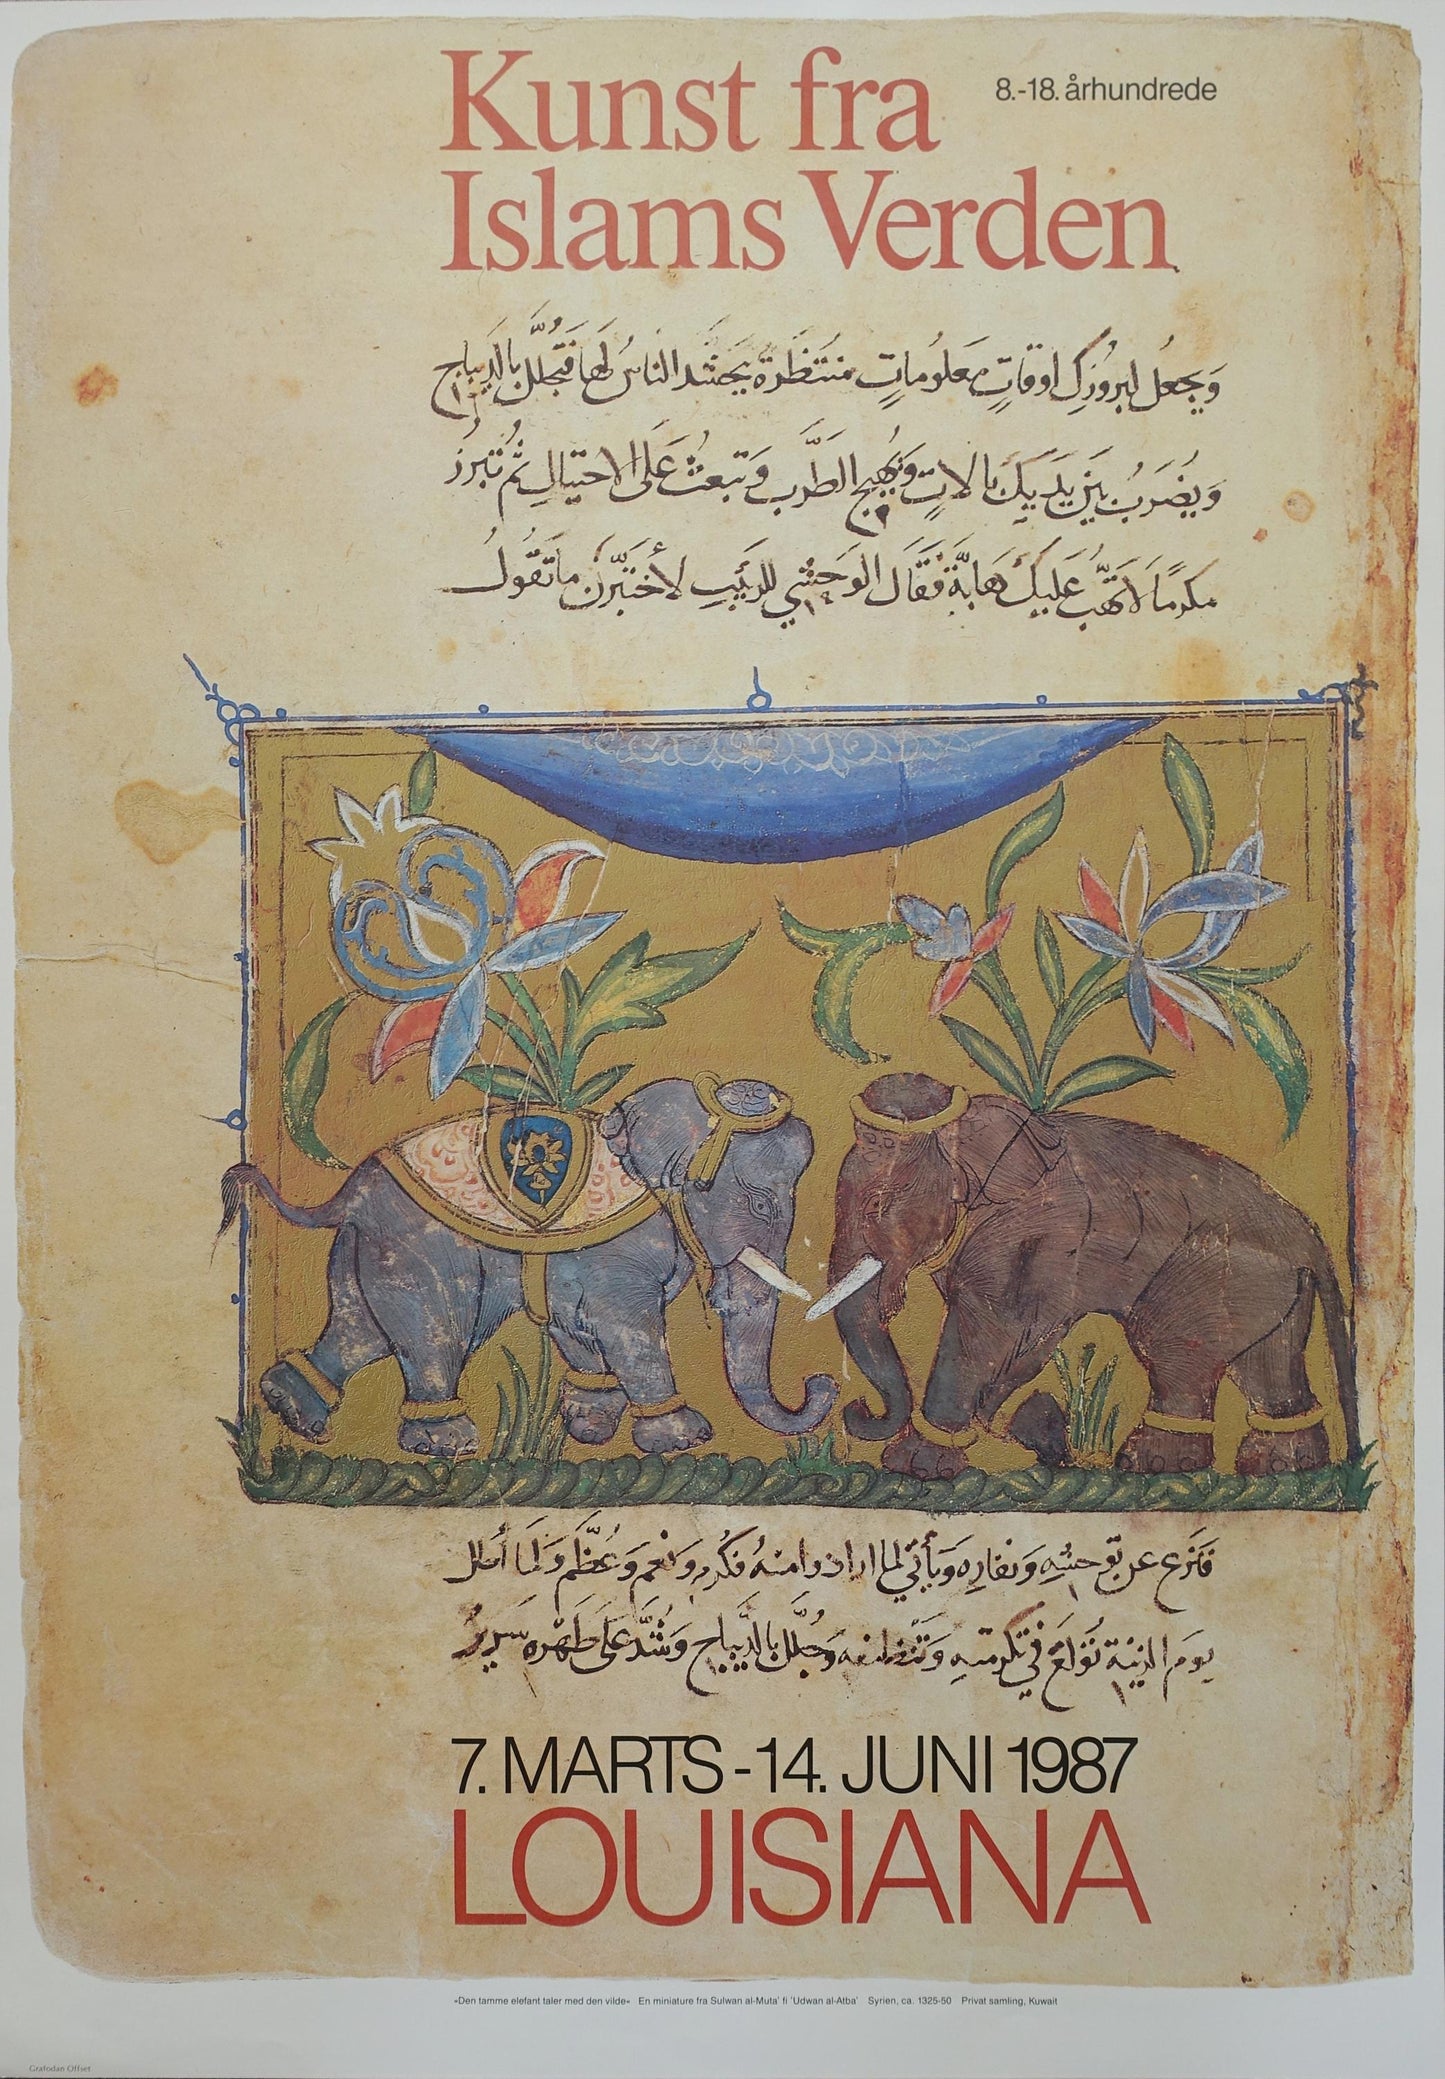 Kunst fra
8.-18. århundrede
Islams Verden
وَيجعُل لبروُزكِ اوقاتٍ مَعلوُماتٍ منُتَظَرة يَحشُد الناسُ لهَا فتجَلَّلُ بالديَباج
وَيضُرَبُ بَين يَدَيكَ بالالاتٍ وَيهُيج الطَّرَب وَتبعثُ عَلَى الاحتيالِ ثمُ تبَرُز
مكرمًا لاَ تَهُبّ عَليكَ هَابَّة فقَالَ الوَحشي للرَبَيبِ لأختَبِرَّن ماَتقَوُلُ
فنَزع عن توَحشهِ وَنفارِه وَيأتي لما اراد وامنهُ فكُرِم وَنعم وَعُظَّم وَلمَا
يومَ الزينَة توُلعَ في تكَرمتهِ وَتنَظيفه وَجلُلَّ بالديَباج وَشُدَّ عَلَى ظهَره سَريرُ
7. MARTS - 14. JUNI 1987
LOUISIANA
»Den tamme elefant taler med den vilde« En miniature fra Sulwan al-Muta' fi 'Udwan al-Atba' Syrien, ca. 1325-50 Privat samling, Kuwait
Grafodan Offset